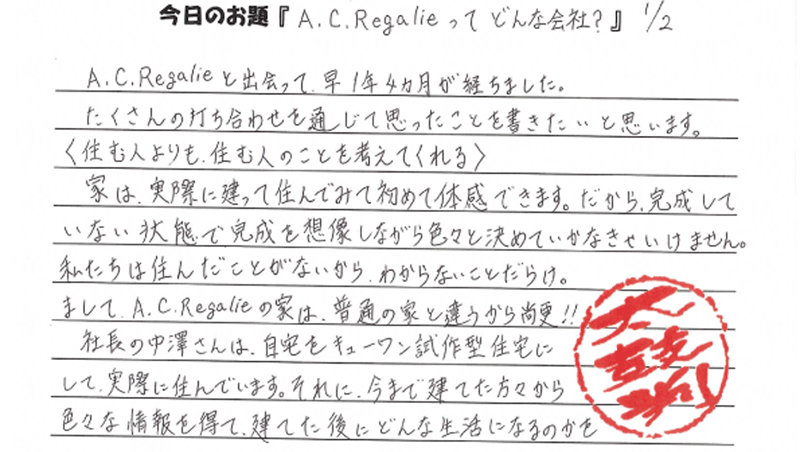 今日のお題『A.C.Regalieってどんな会社?』1/2
A.C.Regalieと出会って、早1年4カ月が経ちました。
たくさんの打ち合わせを通じて思ったことを書きたいと思います。
〈住む人よりも、住む人のことを考えてくれる〉
家は、実際に建って住んでみて初めて体感できます。だから、完成して
いない状態で完成を想像しながら色々と決めていかなきゃいけません。
私たちは住んだことがないから、わからないことだらけ。
まして、A.C.Regalieの家は、普通の家と違うから尚更!!
社長の中澤さんは、自宅をキューワン試作型住宅に
して、実際に住んでいます。それに、今まで建てた方々から
色々な情報を得て、建てた後にどんな生活になるのかを
太鼓判